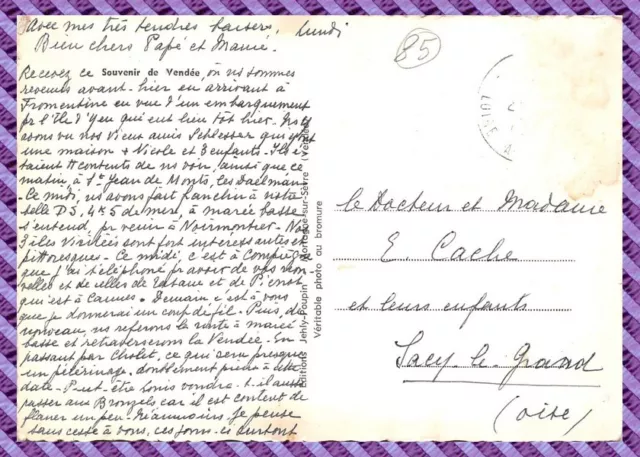 Avec mes très tendres baisers, Lundi
Bien chers Papé et Mamie.
85
Recevez ce Souvenir de Vendée, où ns sommes
revenus avant-hier en arrivant à
Fromentine en vue d'un embarquement
pr l'Ile d'Yeu qui eut lieu tôt hier.
avons vu nos vieux amis Schlesser qui ont
une maison + Nicole et 3 enfants. Ils é-
taient contents de ns voir, ainsi que ce
matin, à St Jean de Monts, les Daelman
Ce midi, ns avons fait franchir à notre
belle DS, 4 k 5 de mer, à marée basse
s'entend, pr venir à Noirmoutier. Nos
3 îles visitées sont fort intéressantes et
pittoresques. Ce midi, c'est à Compiègne
que j'ai téléphoné pr avoir de vos nou-
velles et de celles de et de
qui est à Cannes. Demain c'est à vous
que je donnerai un coup de fil. Puis, de
nouveau, ns referons la route à marée
basse et retraverserons la Vendée. En
passant par Cholet, ce qui sera presque
un pèlerinage, doublement pieux à cette
date. Peut-être Louis voudra-t-il aussi
passer aux car il est content de
flâner un peu. Néanmoins je pense
sans cesse à vous, ces jours-ci surtout
Editions Jehly-Poupin Montaigu-sur-Sèvre (Vendée)
Véritable photo au bromure
le Docteur et Madame
E. Cache
et leurs enfants
Sacy-le-Grand
(Oise)